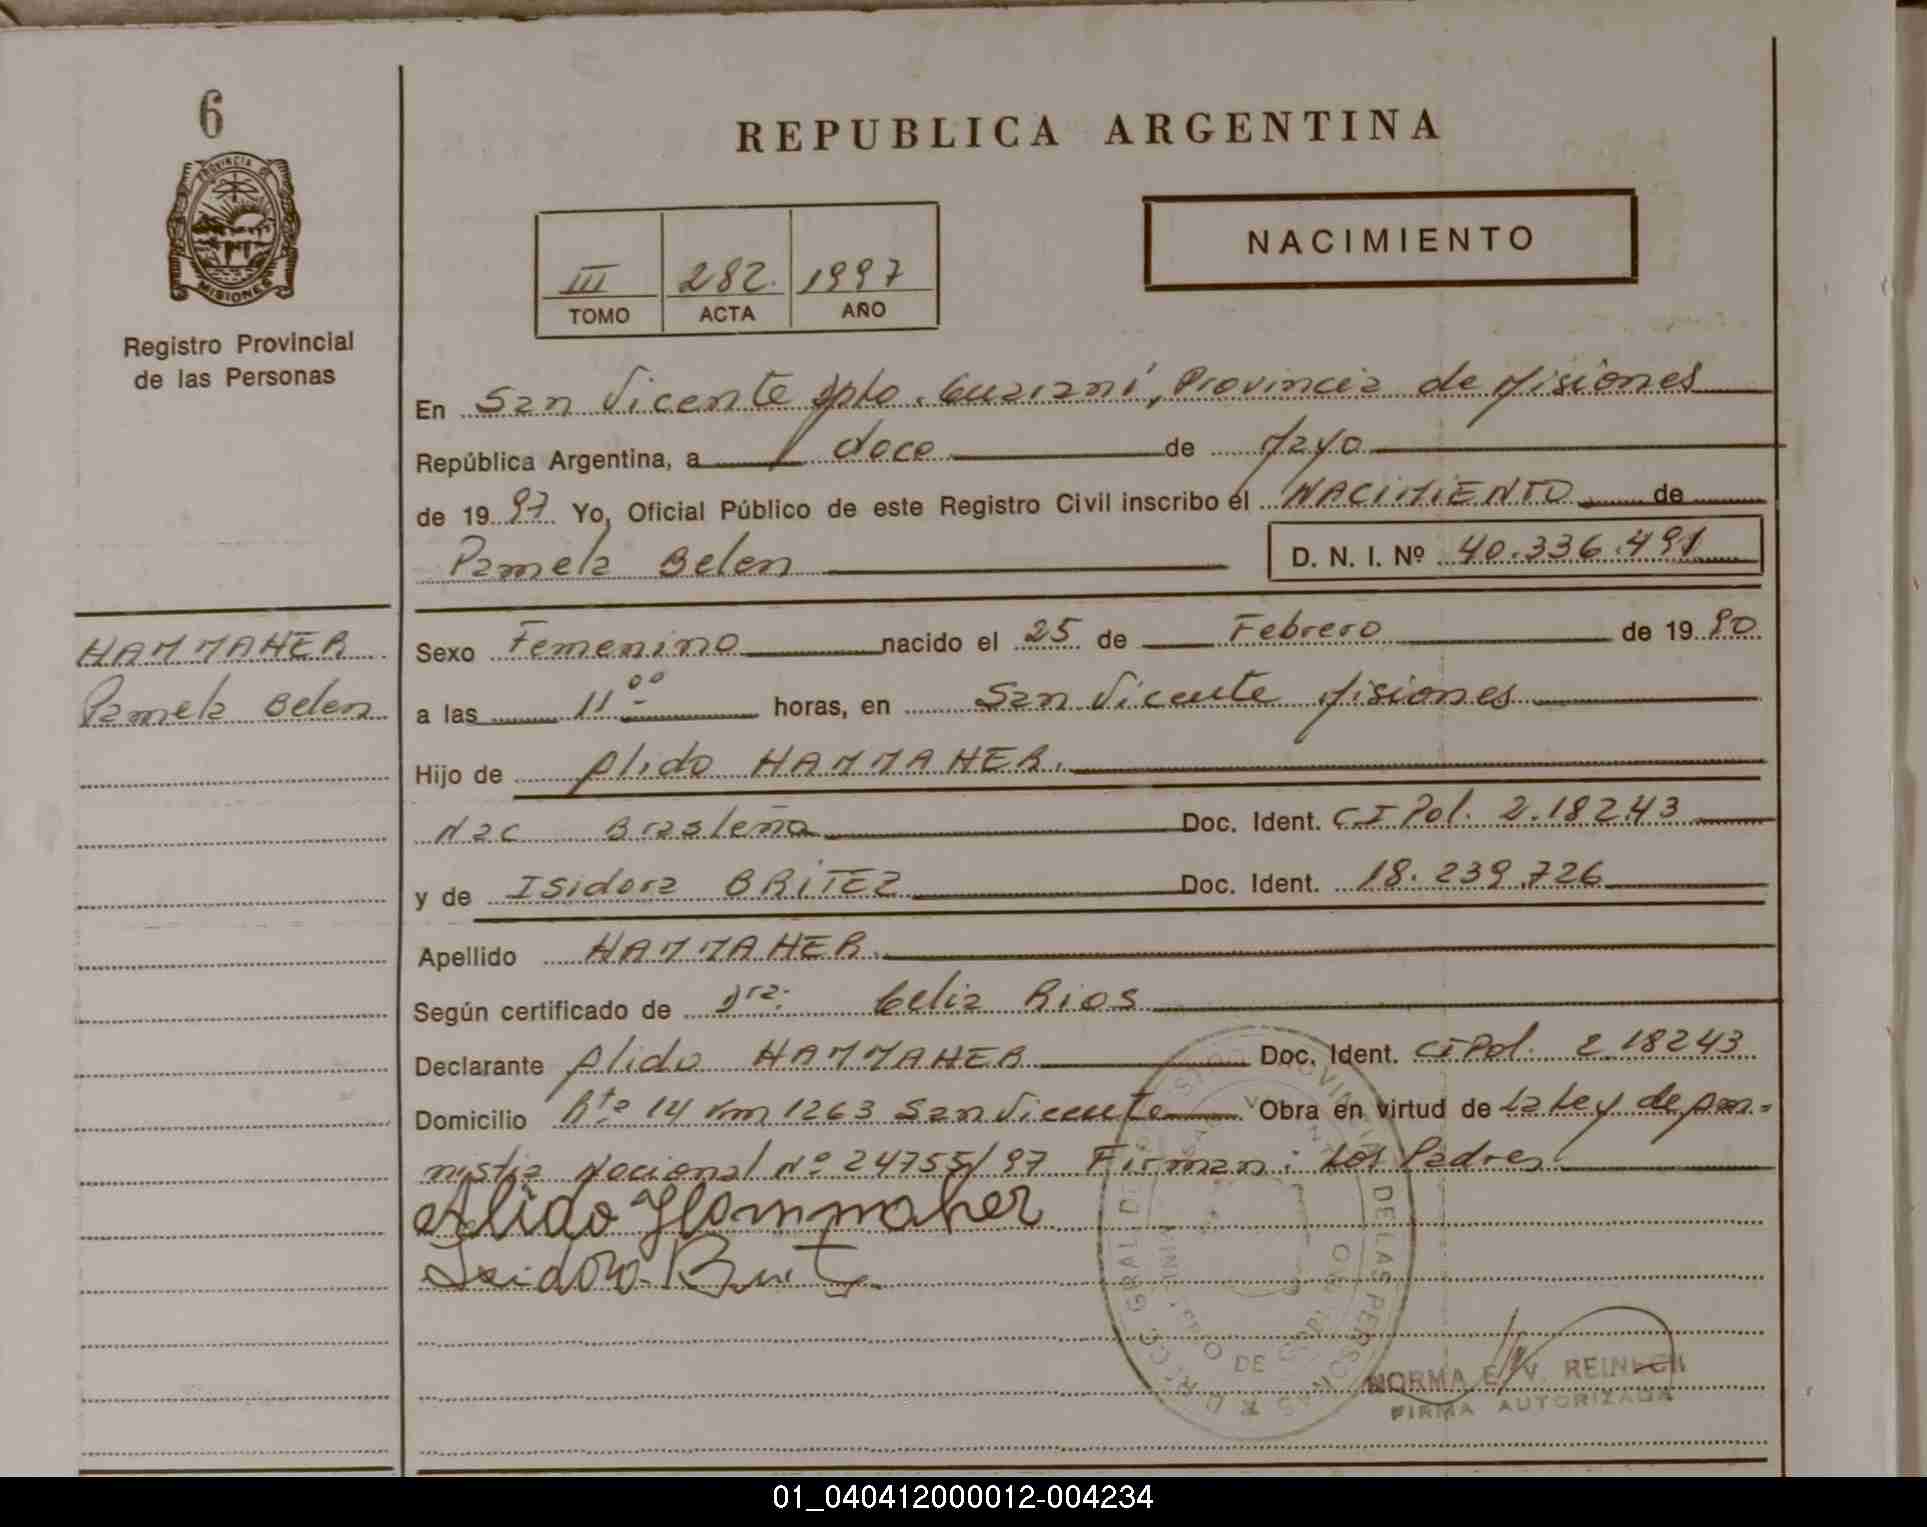 6
PROVINCIA DE
MISIONES
Registro Provincial
de las Personas
REPUBLICA ARGENTINA
III 282. 1997
TOMO ACTA AÑO
NACIMIENTO
En San Vicente Dpto. Guaraní, Provincia de Misiones
República Argentina, a doce de Mayo
de 1997 Yo, Oficial Público de este Registro Civil inscribo el NACIMIENTO de
Pamela Belen D. N. I. Nº 40.336.491
HAMMAHER
Pamela Belen
Sexo Femenino nacido el 25 de Febrero de 1990
a las 11 00 horas, en San Vicente Misiones
Hijo de Alido HAMMAHER.
Nac Brasleña Doc. Ident. CI Pol. 2.18243
y de Isidora BRITEZ Doc. Ident. 18.239.726
Apellido HAMMAHER.
Según certificado de Dra. Celia Rios
Declarante Alido HAMMAHER Doc. Ident. CI Pol. 2.18243
Domicilio Rta 14 Km 1263 San Vicente Obra en virtud de La Ley de
Nacional Nº 24755/97 Firman: Los Padres
Alido Hammaher
Isidora Brit
NORMA E. V.
FIRMA AUTORIZADA
01_040412000012-004234